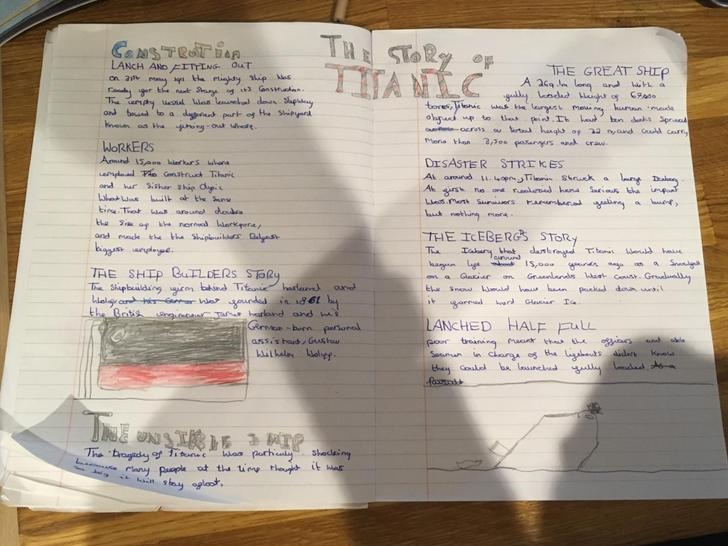 THE STORY OF
TITANIC
CONSTRUTION
LANCH AND FITTING OUT
on 31st may 1911 the mighty ship was
ready for the next stage of its construction.
The empty vessel was launched down slipway
and towed to a different part of the shipyard
known as the fitting-out wharf.
WORKERS
Around 15,000 workers where
employed to construct Titanic
and her sister ship Olypic
what was built at the same
time. That was around double
the size of the normal workforce,
and made the the shipbuilders Belfast
biggest employer.
THE SHIP BUILDERS STORY
The shipbuilding firm behind Titanic harland and
Wolff and his German was founded in 1861 by
the British engineer James harland and his
German-born personal
assistant, Gustav
Wilhelm Wolff.
THE UNSIKBLE SHIP
The tragedy of Titanic was particuly shocking
because many people at the time thought it was
so big it will stay afloat.
THE GREAT SHIP
A 269.1m long and with a
fully loaded weight of
tones, Titanic was the largest moving human-made
object up to that point. It had ten decks spread
across a total height of 32 m and could carry
More than 3,300 passengers and crew.
DISASTER STRIKES
At around 11.40pm, Titanic struck a large Iceberg.
At first no one realised how serious the impact
was. Most survivors remembered feeling a bump,
but nothing more.
THE ICEBERG'S STORY
The Iceberg that destroyed Titanic would have
began life around 15,000 years ago as a snowfall
on a Glacier on Greenlands West coast. Gradually
the snow would have been packed down until
it formed hard Glacier Ice.
LANCHED HALF FULL
poor training meant that the officers and able
Seaman in charge of the lifeboats didn't know
they could be launched fully loaded.